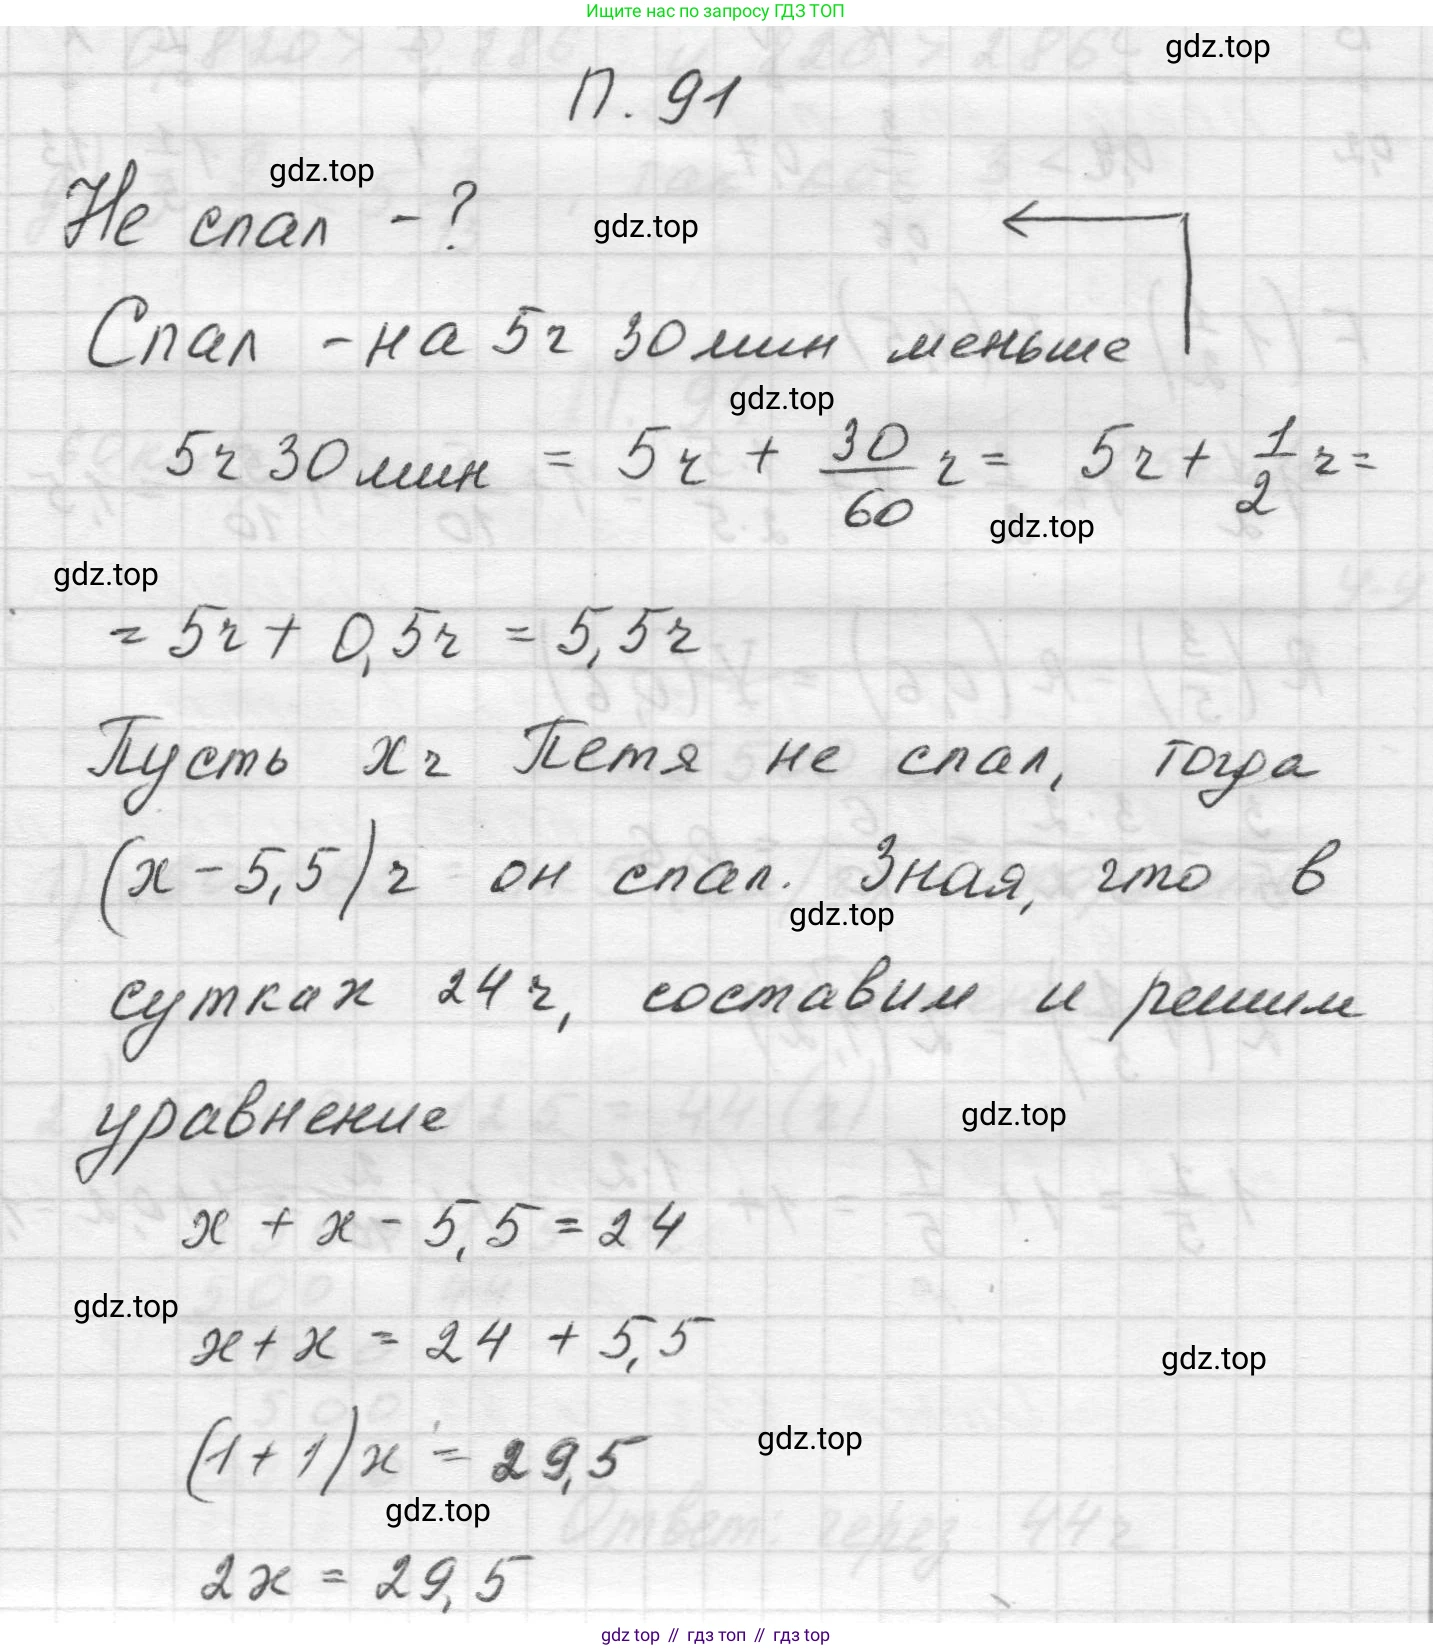 Ищите нас по запросу ГДЗ ТОП
gdz.top
П. 91
gdz.top
Не спал - ?
gdz.top
Спал - на 5ч 30 мин меньше
gdz.top
5ч 30 мин = 5ч + 30/60 ч = 5ч + 1/2 ч =
gdz.top
gdz.top
= 5ч + 0,5ч = 5,5ч
Пусть х ч Петя не спал, тогда
(х - 5,5) ч он спал. Зная, что в
gdz.top
сутках 24 ч, составим и решим
уравнение
gdz.top
х + х - 5,5 = 24
gdz.top
х + х = 24 + 5,5
gdz.top
(1 + 1) х = 29,5
gdz.top
gdz.top
2х = 29,5
gdz top // гдз топ // гдз top